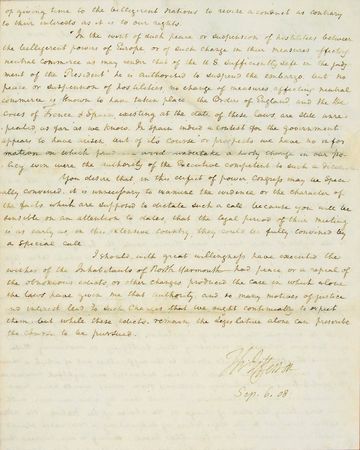 of giving time to the belligerent nations to revise a conduct as contrary
to their interests as it is to our rights.
"In the event of such peace or suspension of hostilities between
the belligerent powers of Europe or of such change in their measures affecting
neutral commerce as may render that of the U.S. sufficiently safe in the judg-
ment of the President" he is authorized to suspend the embargo. but no
peace or suspension of hostilities, no change of measures affecting neutral
commerce is known to have taken place. the Orders of England and the De
crees of France & Spain, existing at the date of these laws are still unre-
pealed, as far as we know. In Spain indeed a contest for the government
appears to have arisen but of its course or prospects we have no infor
mation on which prudence would undertake a hasty change in our po-
licy even were the authority of the Executive competent to such a decision.
You desire that in this defect of power Congress may be spe-
cially convened. it is unnecessary to examine the evidence or the character of
the facts which are supposed to dictate such a call because you will be
sensible on an attention to dates, that the legal period of their meeting
is as early as, in this extensive country, they could be fully convened by
a special call.
I should with great willingness have executed the
wishes of the Inhabitants of North Yarmouth had peace or a repeal of
the obnoxious edicts, or other changes produced the case in which alone
the laws have given me that authority. and so many motives of justice
and interest lead to such changes that we ought continually to expect
them. but while these edicts remain the legislature alone can prescribe
the course to be pursued.
Th: Jefferson
Sep. 6. 08